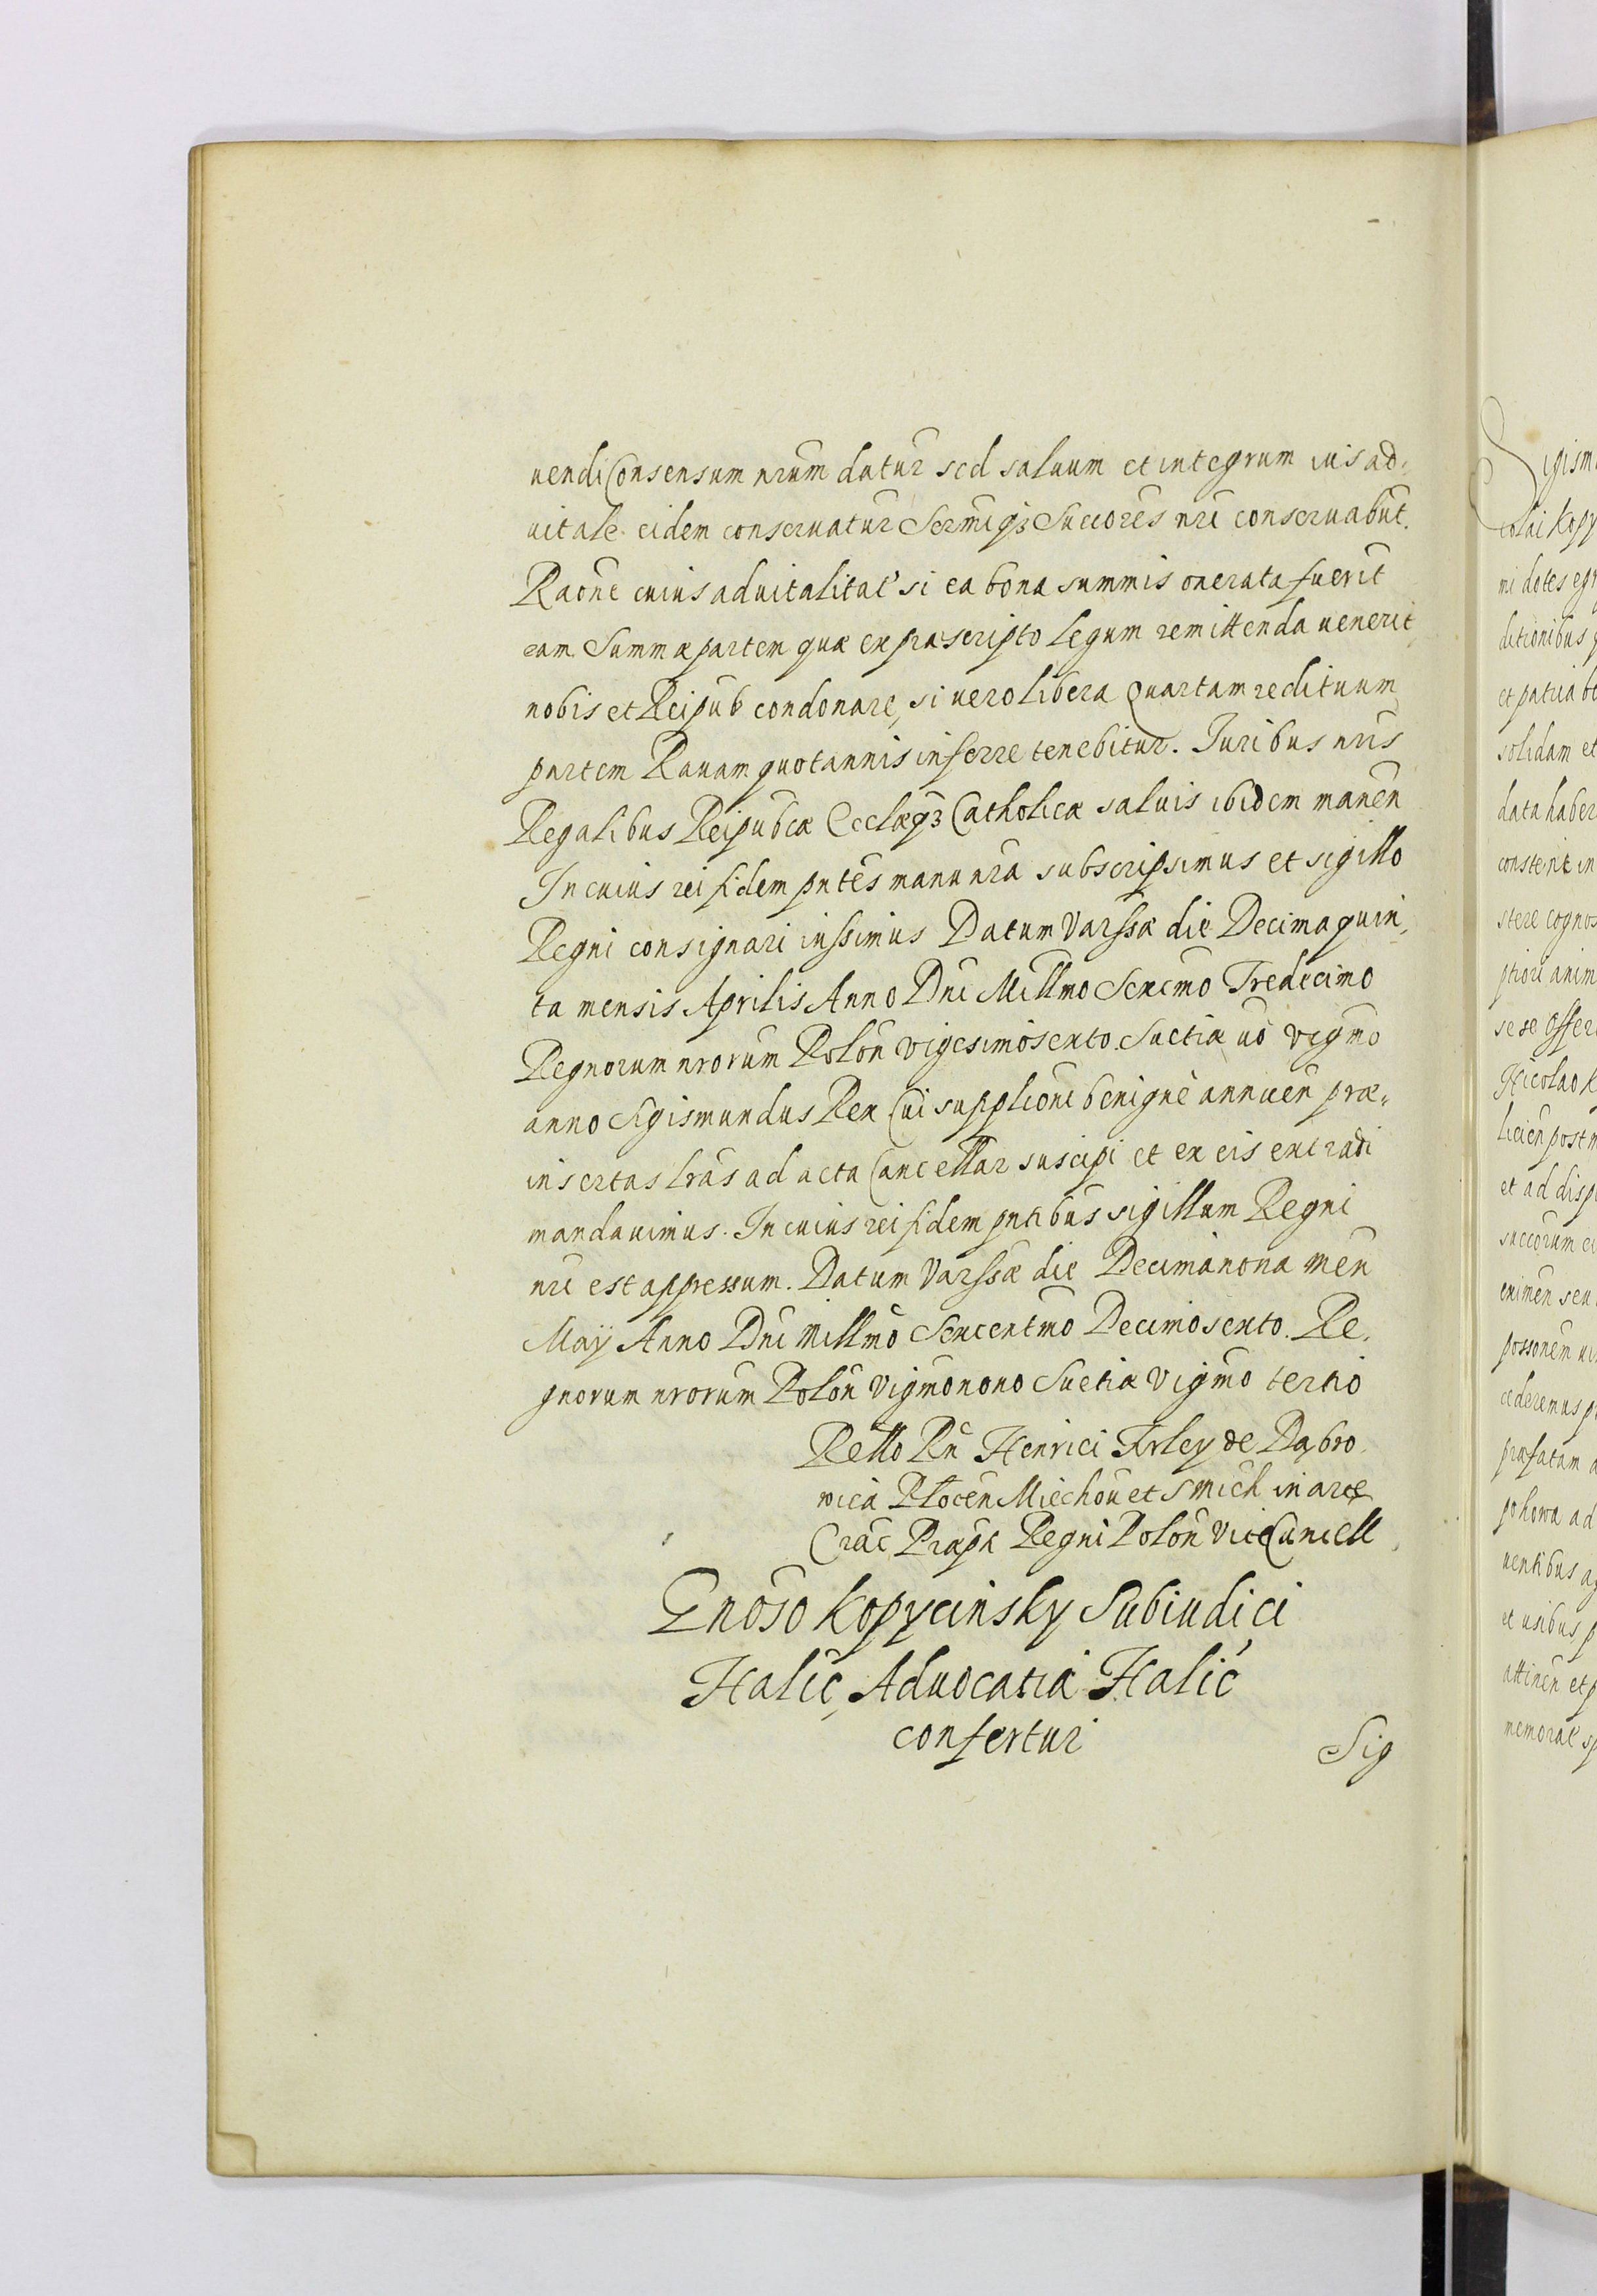 uendi Consensum nrum datur sed saluum et integrum ius ad,
uitale eidem conseruatur Sermiq3 Succores nri conseruabut.
Raone cuius aduitalitat si ea bona summis onerata fuerit
eam Summæ partem quæ ex præscripto legum remittenda uenerit
nobis et Reipub condonare, si uero libera Quartam redituum
partem Rauam quotannis inferre tenebitur. Juribus nris
Regalibus Reipubcæ Ecclæq3 Catholicæ saluis ibidem manen
In cuius rei fidem pntes manu nra subscripsimus et sigillo
Regni consignari iussimus Datum Varssæ die Decima quin,
ta mensis Aprilis Anno Dni Millmo Sexcmo Tredecimo
Regnorum nrorum Polon vigesimosexto Suetiæ uo vigmo
anno Sigismundus Rex Cui supplioni benignè annuen præ,,
insertas lras ad acta Cancellar suscipi et ex eis extradi
mandauimus. In cuius rei fidem pntibus sigillum Regni
nri est appressum. Datum Varssæ die Decimanona men
Maÿ Anno Dni Millmo Sexcentmo Decimosexto. Re,
gnorum nrorum Polon Vigmonono Suetiæ Vigmo tertio
Rello Rn Henrici Firley de Dąbro
wica Plocen Miechou et S Mich in arce
Crac Præpt Regni Polon ViceCancell
Gnoso Kopycinsky Subiudici
Halic, Aduocatia Halic
confertur
Sig
Sigism
colai Kopy
mi dotes egr
ditionibus
et patria be
solidam et
data haber
consterit in
stere cognos
ptiori anim
se se offer
Nicolao K
licien post m
et ad disp
succorum ei
eximen seu
possonem ui
cederemus p
præfatam a
pohowa ad
uentibus ag
et usibus p
attinen et p
memorat sp